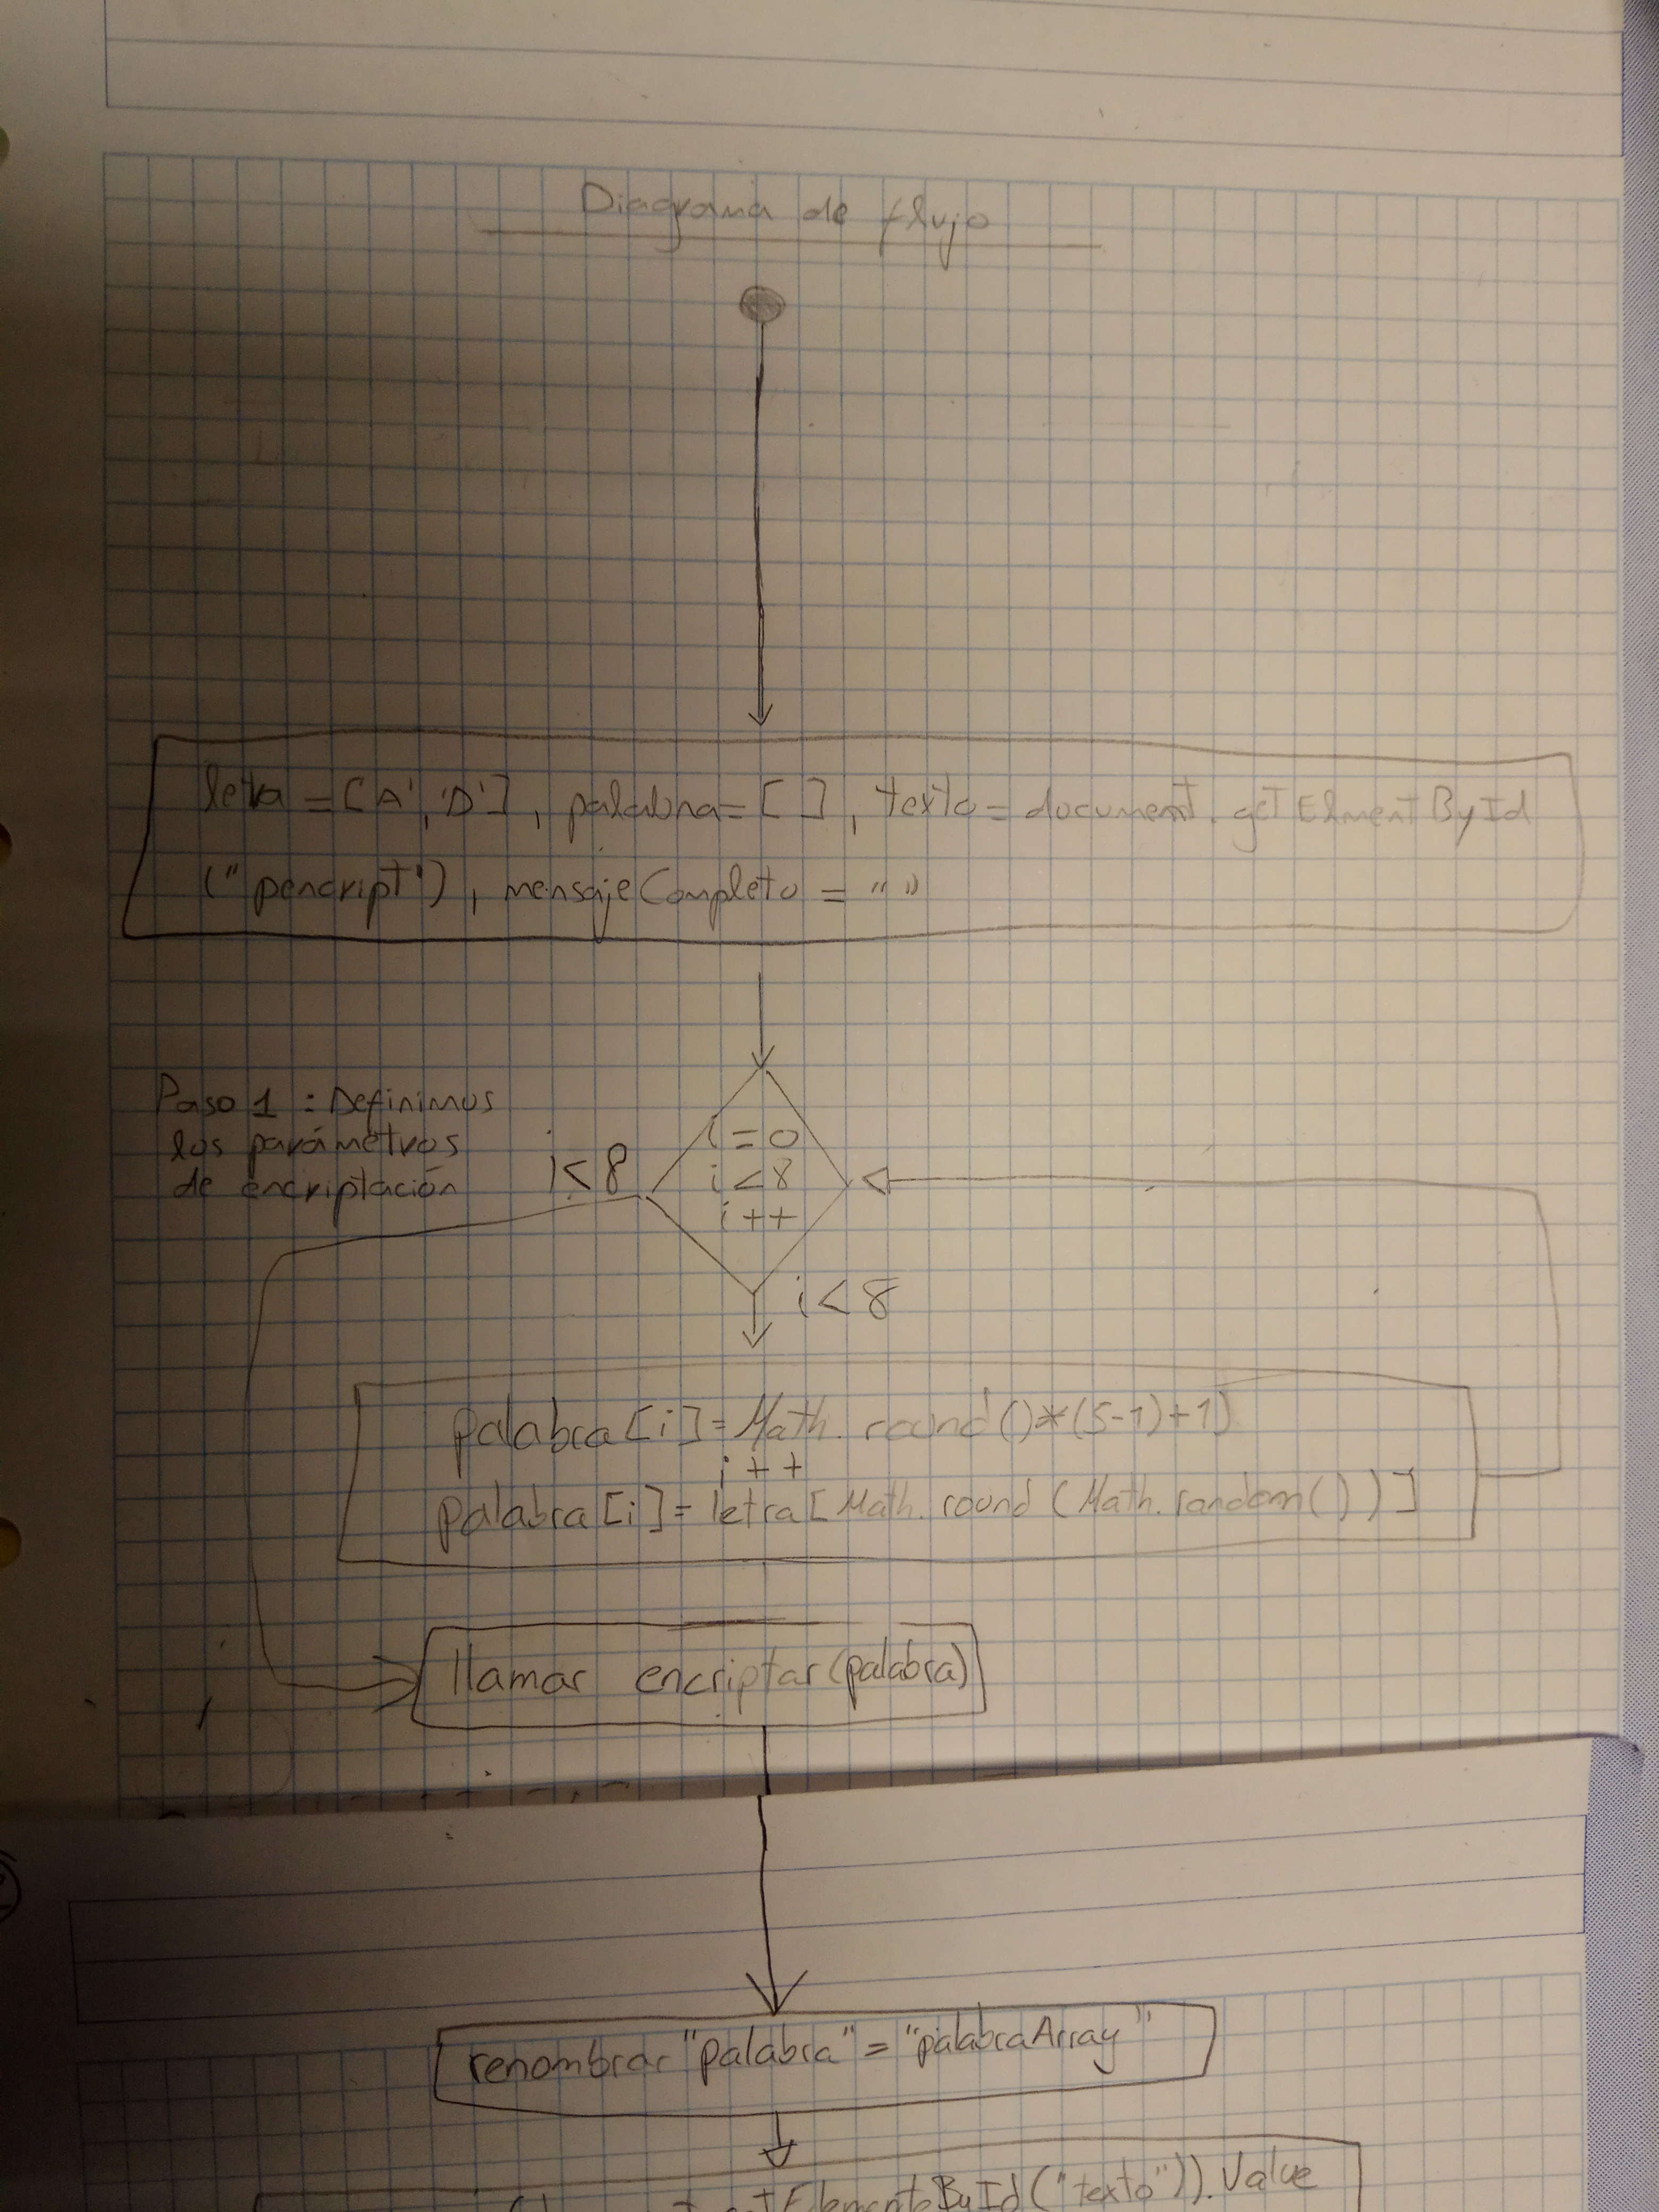 Diagrama de flujo
letra = ['A', 'D'], palabra = [ ], texto = document.getElmentById
("pencript"), mensajeCompleto = " "
Paso 1 : Definimos
los parámetros
de encriptación
i<8
i=0
i<8
i++
i<8
palabra[i]=Math.round()*(5-1)+1)
i++
palabra[i]=letra[Math.round(Math.random())]
llamar encriptar(palabra)
renombrar "palabra" = "palabraArray"
ElementoById("texto")).Value